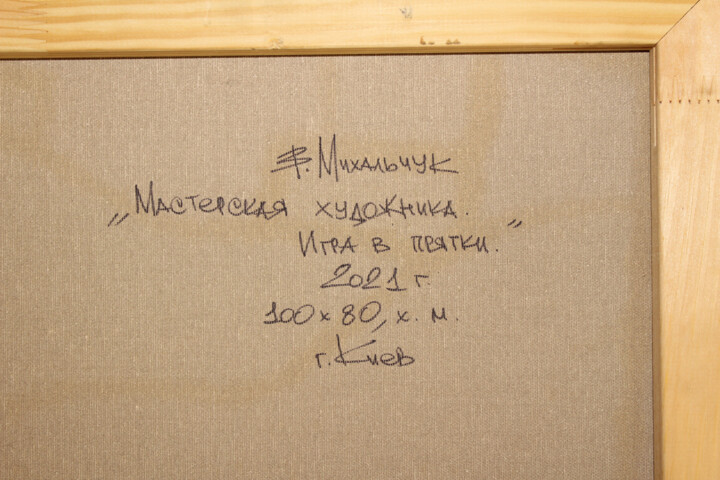 В. Михальчук
„Мастерская художника.
Игра в прятки."
2021 г.
100 х 80, х. м.
г. Киев